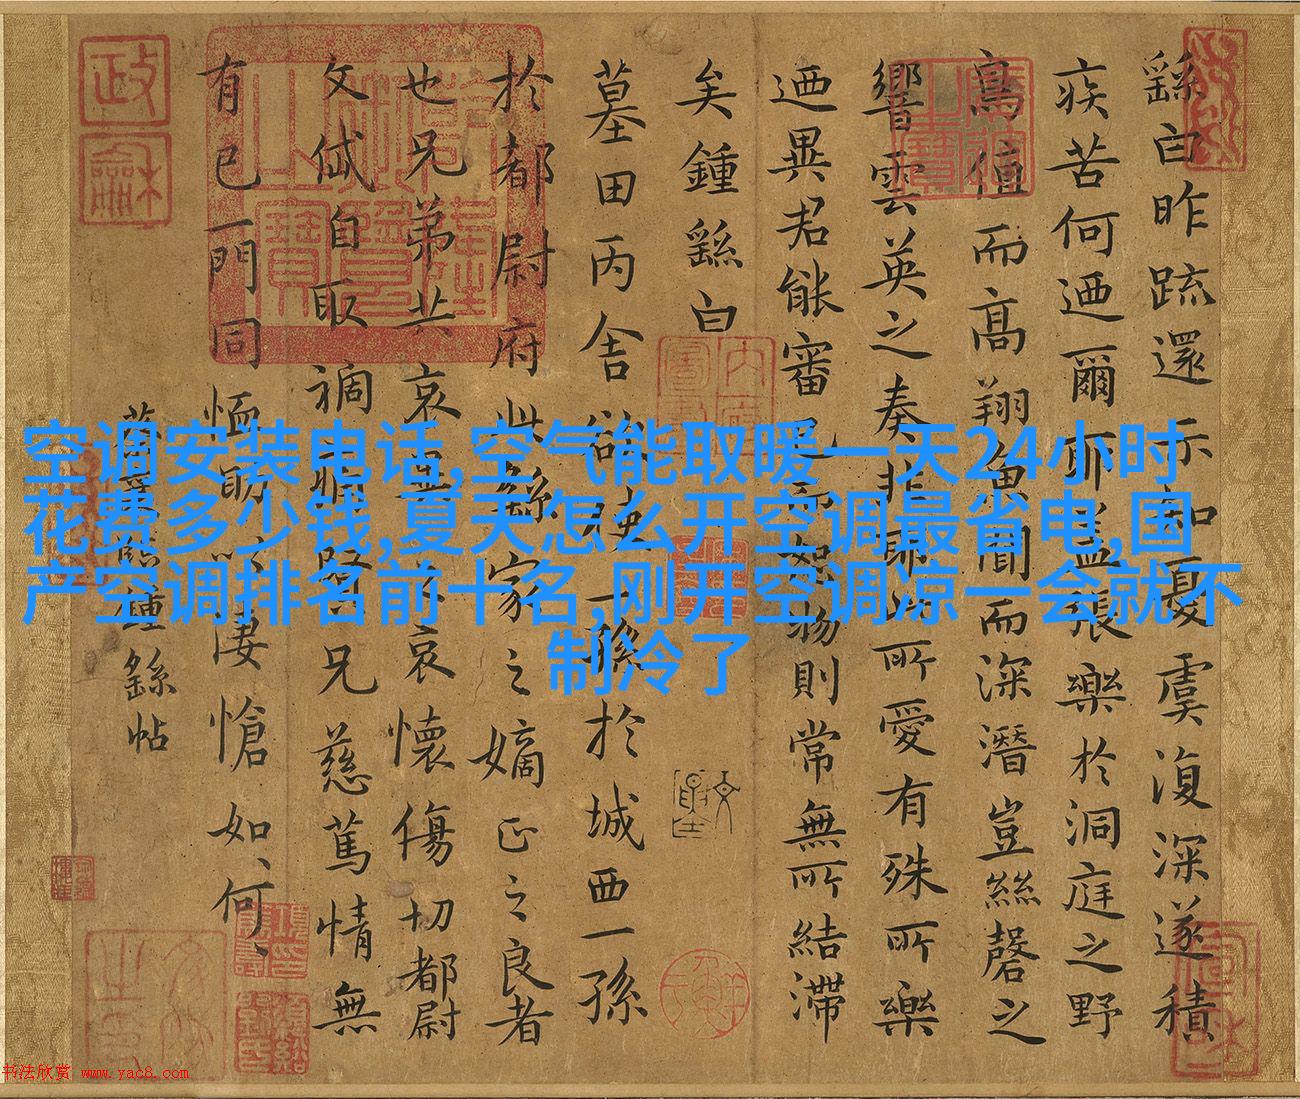 繇白昨疏還示知憂虞復深遂積
疾苦何迺爾耶蓋張樂於洞庭之野
鳥值而高翔魚聞而深潛豈絲磬之
響雲英之奏非耶此所愛有殊所樂
迺異君能審己而恕物則常無所結滯
矣鍾繇白
墓田丙舍欲使一孫於城西一孫
於都尉府此繇家之嫡正之良者
也兄弟共哀異之哀懷傷切都尉
文岱自取禍痛賢兄慈篤情無
有已一門同恤助以悽愴如何
臨鍾繇帖
空调安装电话,空气能取暖一天24小时
花费多少钱,夏天怎么开空调最省电,国
产空调排名前十名,刚开空调凉一会就不
制冷了
书法欣赏 www.yac8.com